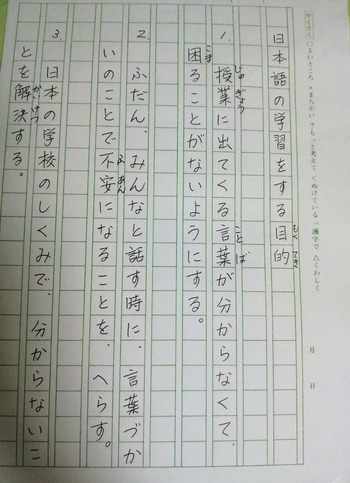 やくそく ○よいところ ×まちがい ?もっと考えて くぬけている 「漢字で △くわしく
月 日
もくてき
日本語の学習をする目的
じゅぎょう ことば
1. 授業に出てくる言葉が分からなくて、
こま
困ることがないようにする。
2. ふだん、みんなと話す時に、言葉づか
ふあん
いのことで不安になることを、へらす。
3. 日本の学校のしくみで、分からないこ
かいけつ
とを解決する。